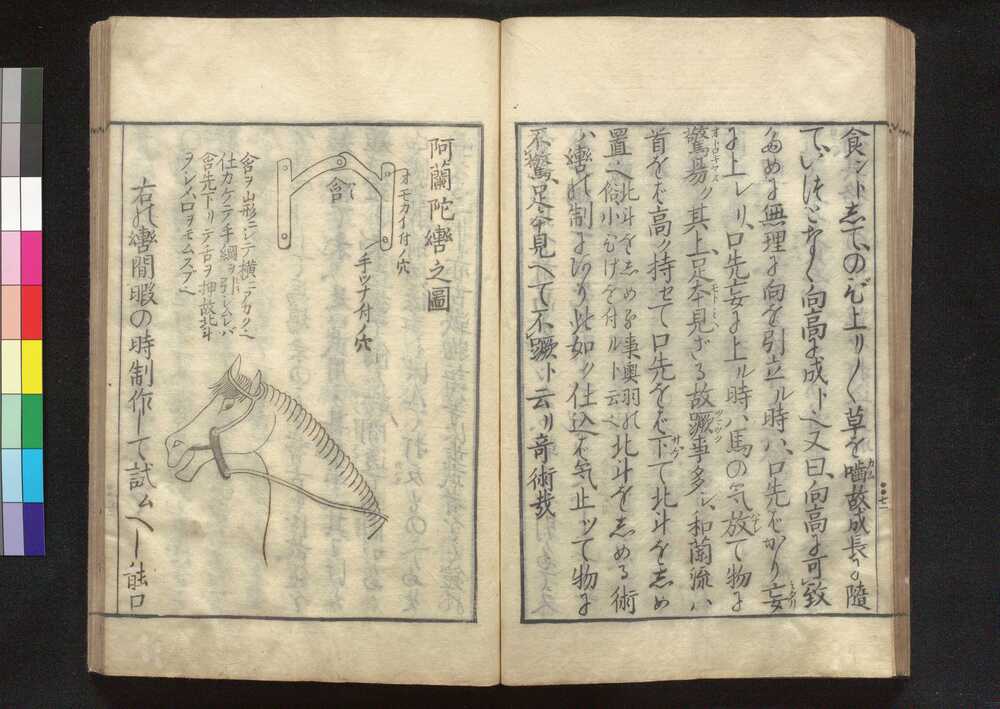 食ントしてのび上り〱草を嚙故成長に随
ていほどなく向高に成トヘ又曰向高に可致
ために無理に向を引立ル時ハ口先ばかり妄
に上レリ口先妄に上ル時ハ馬の気放て物に
驚易ク其上足本見ざる故蹶事多シ和蘭流ハ
首をば高ク持せて口先をば下て北斗をしめ
置ヘ北斗をしめる事奥羽の北斗をしめる術
俗小むけを付ルト云ヘ
ハ轡の制にあり此如ク仕込ば気止ツて物に
不驚足本見へて不蹶ト云リ奇術哉
阿蘭陀轡之圖
オモカイ付ノ穴
含
手ツナ付ノ穴
含ヲ山形ニシテ横ニアカクヘ
仕カケニテ手綱ヲ引シムレバ
含先下リテ舌ヲ押故北斗
ヲクレ口ヲモムスブヘ
右の轡閒暇の時制作して試ムヘし能口